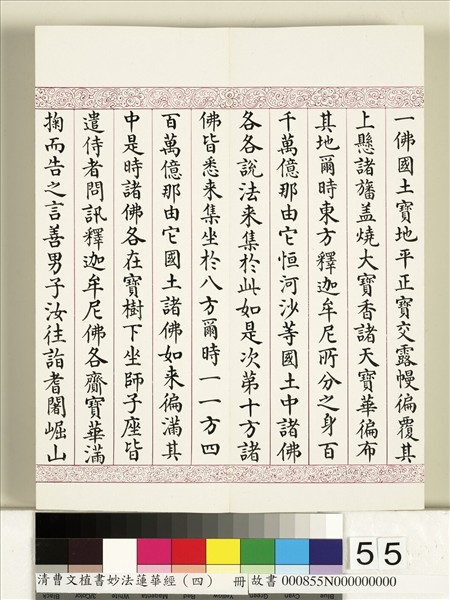 一佛國土寶地平正寶交露幔徧覆其
上懸諸旛盖燒大寶香諸天寶華徧布
其地爾時東方釋迦牟尼所分之身百
千萬億那由它恒河沙等國土中諸佛
各各說法來集於此如是次第十方諸
佛皆悉來集坐於八方爾時一一方四
百萬億那由它國土諸佛如來徧滿其
中是時諸佛各在寶樹下坐師子座皆
遣侍者問訊釋迦牟尼佛各齎寶華滿
掬而告之言善男子汝往詣耆闍崛山
55
清曹文植書妙法蓮華經（四） 冊 故書 000855N000000000